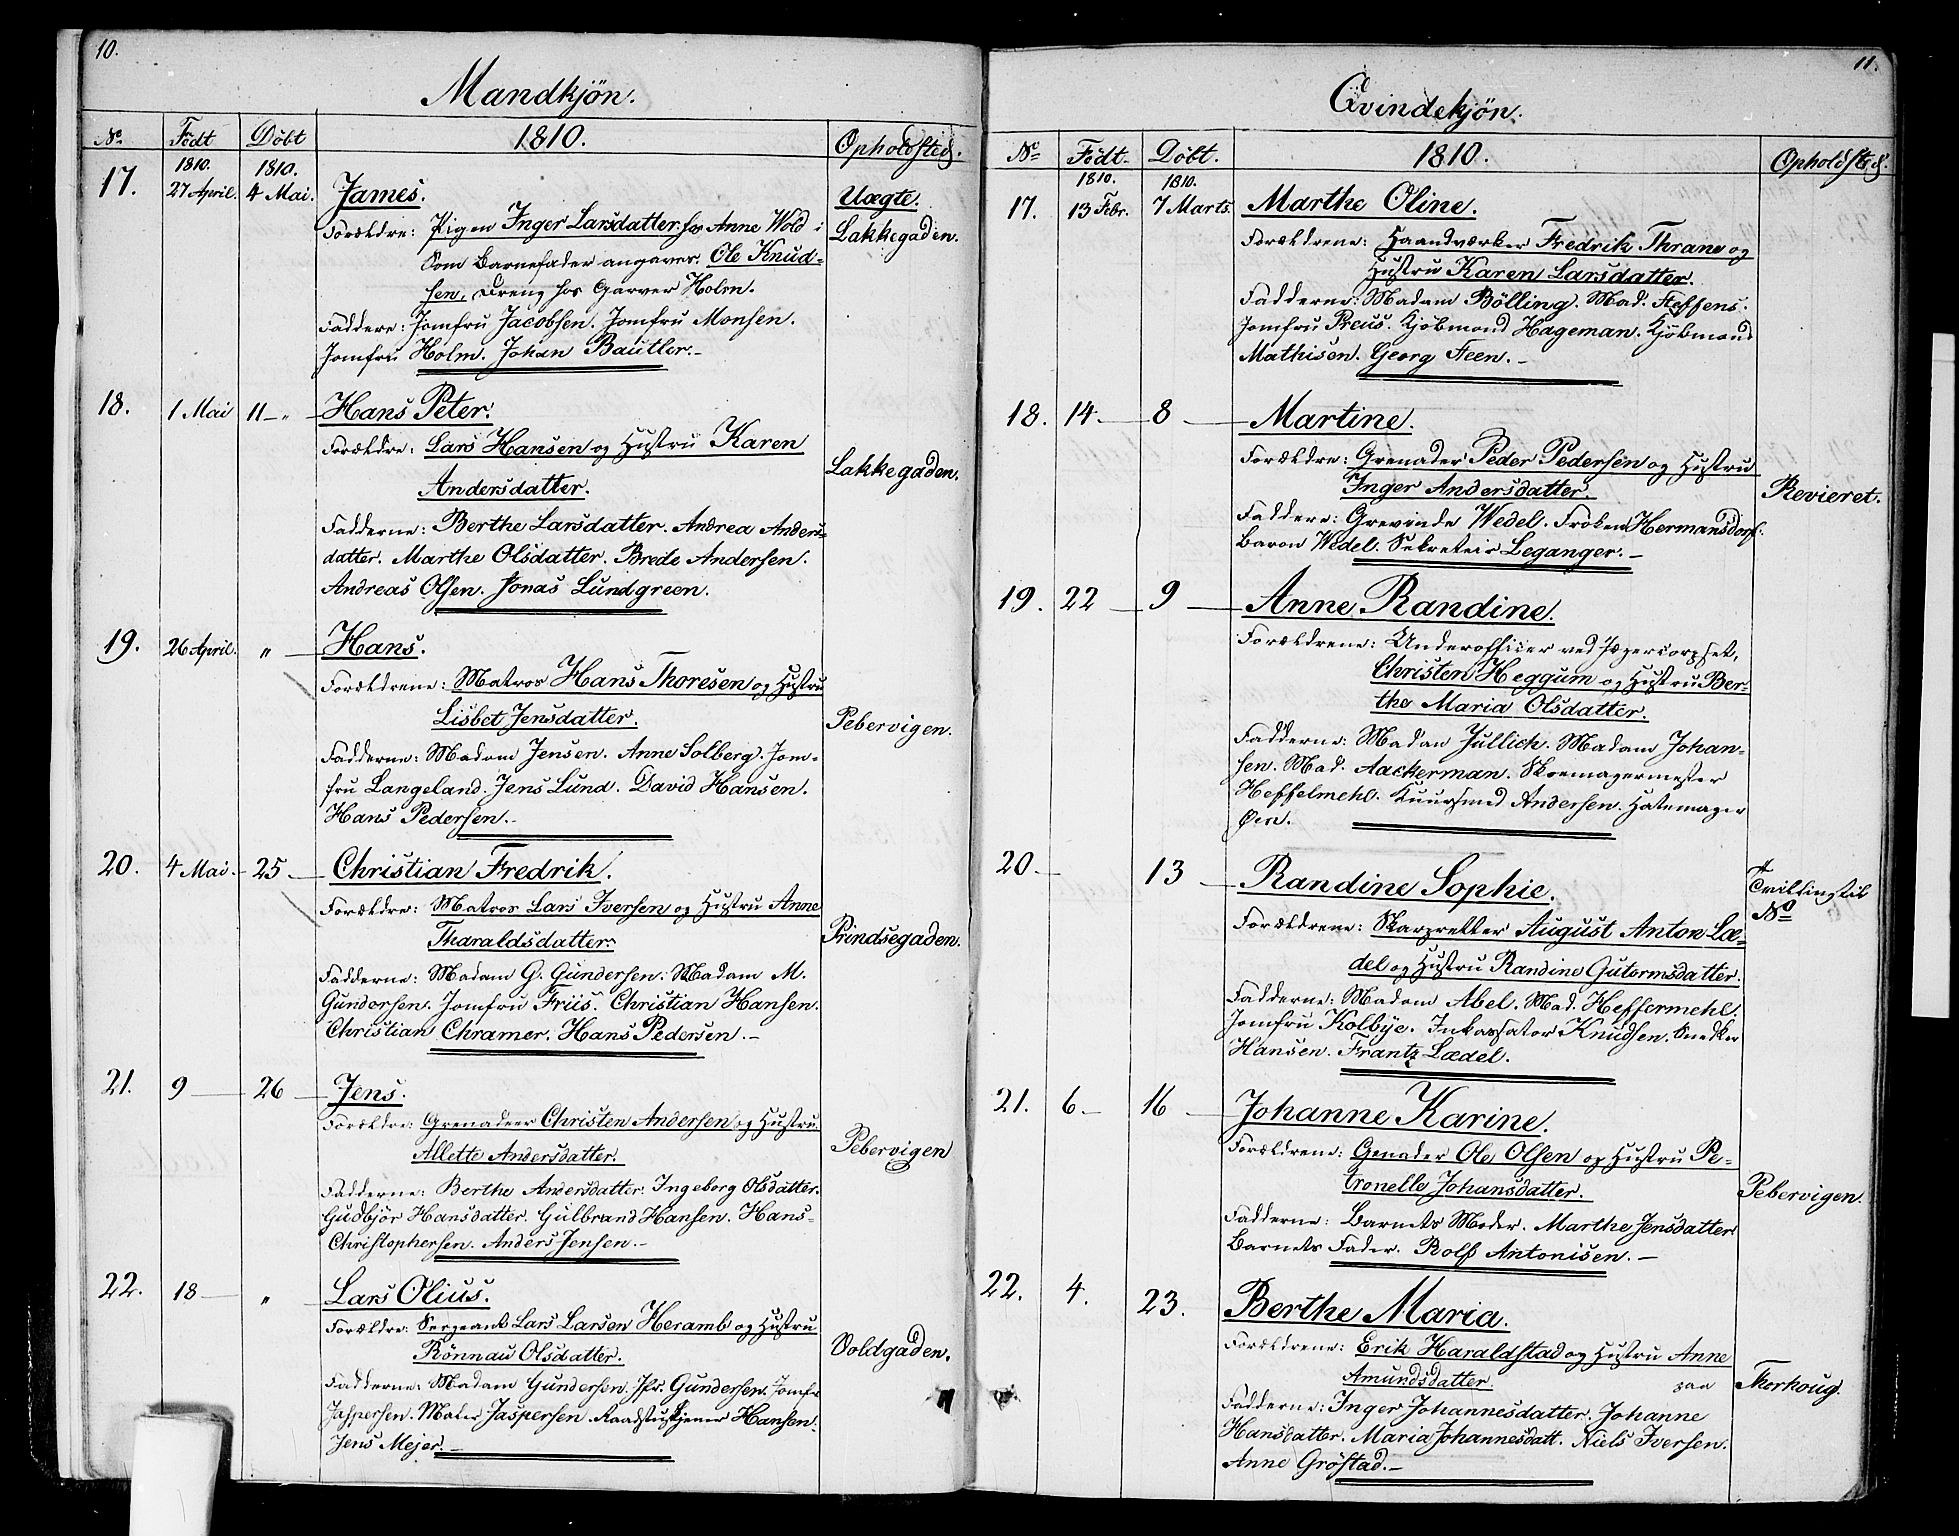 10.
Mandkjön.
No Födt Döbt 1810. Opholdsted.
1810. 1810.
17. 27 April. 4 Mai. James. Uægte.
Forældre: Pigen Inger Larsdatter hos Anne Wold i Lakkegaden.
Som Barnefader angaves Ole Knud-
sen, Dreng hos Garver Holm.
Faddere: Jomfru Jacobsen. Jomfru Monsen.
Jomfru Holm. Johan Bautler.-
18. 1 Mai 11 - „ Hans Peter.
Forældre: Lars Hansen og Hustru Karen
Andersdatter. Lakkegaden.
Fadderne: Berthe Larsdatter. Andrea Anders-
datter. Marthe Olsdatter. Brede Andersen.
Andreas Olsen. Jonas Lundgreen.
19. 26 April. „ Hans.
Forældrene: Matros Hans Thoresen og Hustru
Lisbet Jensdatter. Pebervigen.
Fadderne: Madam Jensen. Anne Solberg. Jom-
fru Langeland. Jens Lund. David Hansen.
Hans Pedersen.-
20. 4 Mai - 25 Christian Fredrik.
Forældre: Matros Lars Iversen og Hustru Anne
Tharaldsdatter. Prindsegaden.
Fadderne: Madam G. Gundersen. Madam M.
Gundorsen. Jomfru Friis. Christian Hansen.
Christian Chramer. Hans Pedersen.-
21. 9 - 26 Jens.
Forældre: Grenadeer Christen Andersen og Hustru
Allette Andersdatter. Pebervigen
Fadderne: Berthe Andersdatter. Ingeborg Olsdatter.
Gudbjör Hansdatter. Gulbrand Hansen. Hans
Christophersen. Anders Jensen.-
22. 18 - „ Lars Olius.
Forældre: Sergeant Lars Larsen Heramb og Hustru
Rönnau Olsdatter. Voldgaden.
Fadderne: Madam Gundersen. Jfr. Gundersen. Jomfr
Jaspersen. Maler Jaspersen. Raadstutjener Hansen.
Jens Mejer.-
11.
Qvindekjön.
No Födt. Döbt. 1810. Opholdsted.
1810. 1810.
17. 13 Febr. 7 Marts. Marthe Oline.
Forældrene: Haandværker Fredrik Thrane og
Hustru Karen Larsdatter.
Fadderne: Madam Bölling. Mad. Steffens.
Jomfru Preus. Kjöbmand Hageman. Kjöbmand
Mathisen. Georg Steen.-
18. 14 - 8 - Martine.
Forældre: Grenader Peder Pedersen og Hustru
Inger Andersdatter. Revieret.
Faddere: Grevinde Wedel. Fröken Hermansdorf.
Baron Wedel. Sekreteir Leganger.-
19. 22 - 9 - Anne Randine.
Forældrene: Underofficier ved Jægercorpset,
Christen Heggum og Hustru Ber-
the Maria Olsdatter.
Fadderne: Madan Jullich. Madam Johan-
sen. Mad. Aackerman. Skomagermester
Heffelmehl. Kuursmed Andersen. Hatemager
Öen.
20 - 13 - Randine Sophie. Tvilling til
No
Forældrene: Skarpretter August Anton Læ-
del og Hustru Randine Gutormsdatter.
Fadderne: Madam Abel. Mad. Heffermehl.
Jomfru Kolbye. Inkassator Knudsen. Snedker
Hansen. Frantz Lædel.
21. 6 - 16 - Johanne Karine.
Forældrene: Genader Ole Olsen og Hustru Pe-
tronelle Johansdatter. Pebervigen.
Fadderne: Barnets Moder. Marthe Jensdatter.
Barnets Fader. Rolf Antonisen.-
22. 4. 23. Berthe Maria.
Forældrene: Erik Haraldstad og Hustru Anne
Amundsdatter. paa Thorhoug.
Fadderne: Inger Johannesdatter. Johanne
Hansdatter. Maria Johannesdatt. Niels Iversen.
Anne Gröstad.-